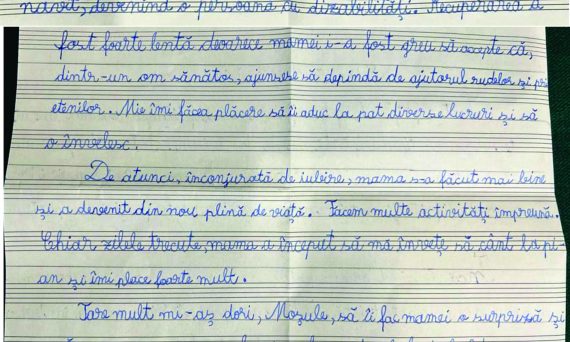 navă, devenind o persoană cu dizabilități. Recuperarea a
fost foarte lentă deoarece mamei i-a fost greu să accepte că,
dintr-un om sănătos, ajunsese să depindă de ajutorul rudelor și pri
etenilor. Mie îmi făcea plăcere să îi aduc la pat diverse lucruri și să
o învelesc.
De atunci, înconjurată de iubire, mama s-a făcut mai bine
și a devenit din nou plină de viață. Facem multe activități împreună.
Chiar zilele trecute, mama a început să mă învețe să cânt la pi-
an și îmi place foarte mult.
Tare mult mi-aș dori, Moșule, să îi fac mamei o surpriză și